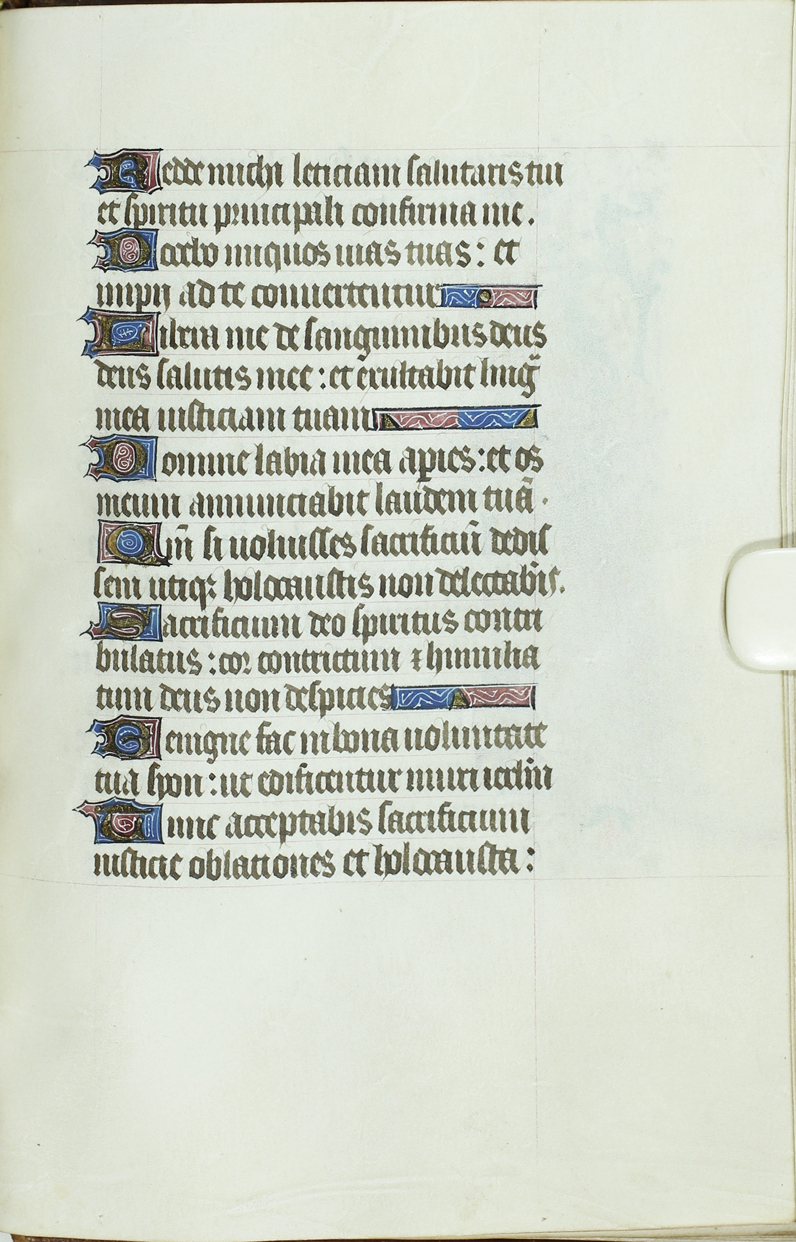 Redde michi leticiam salutaris tui
et spiritu principali confirma me.
Docebo iniquos uias tuas: et
impij ad te conuertentur
Libera me de sanguinibus deus
deus salutis mee: et exultabit linḡ
mea iusticiam tuam
Domine labia mea aperies: et os
meum annunciabit laudem tuā.
Qm̄ si uoluisses sacrificiū dedis
sem utiqꝫ holocaustis non delectab̄is.
Sacrificium deo spiritus contri
bulatus: cor contrictum ⁊ humilia
tum deus non despicies
Benigne fac in bona uoluntate
tua syon: ut edificentur muri ierlm̄
Tunc acceptabis sacrificium
iusticie oblationes et holocausta: